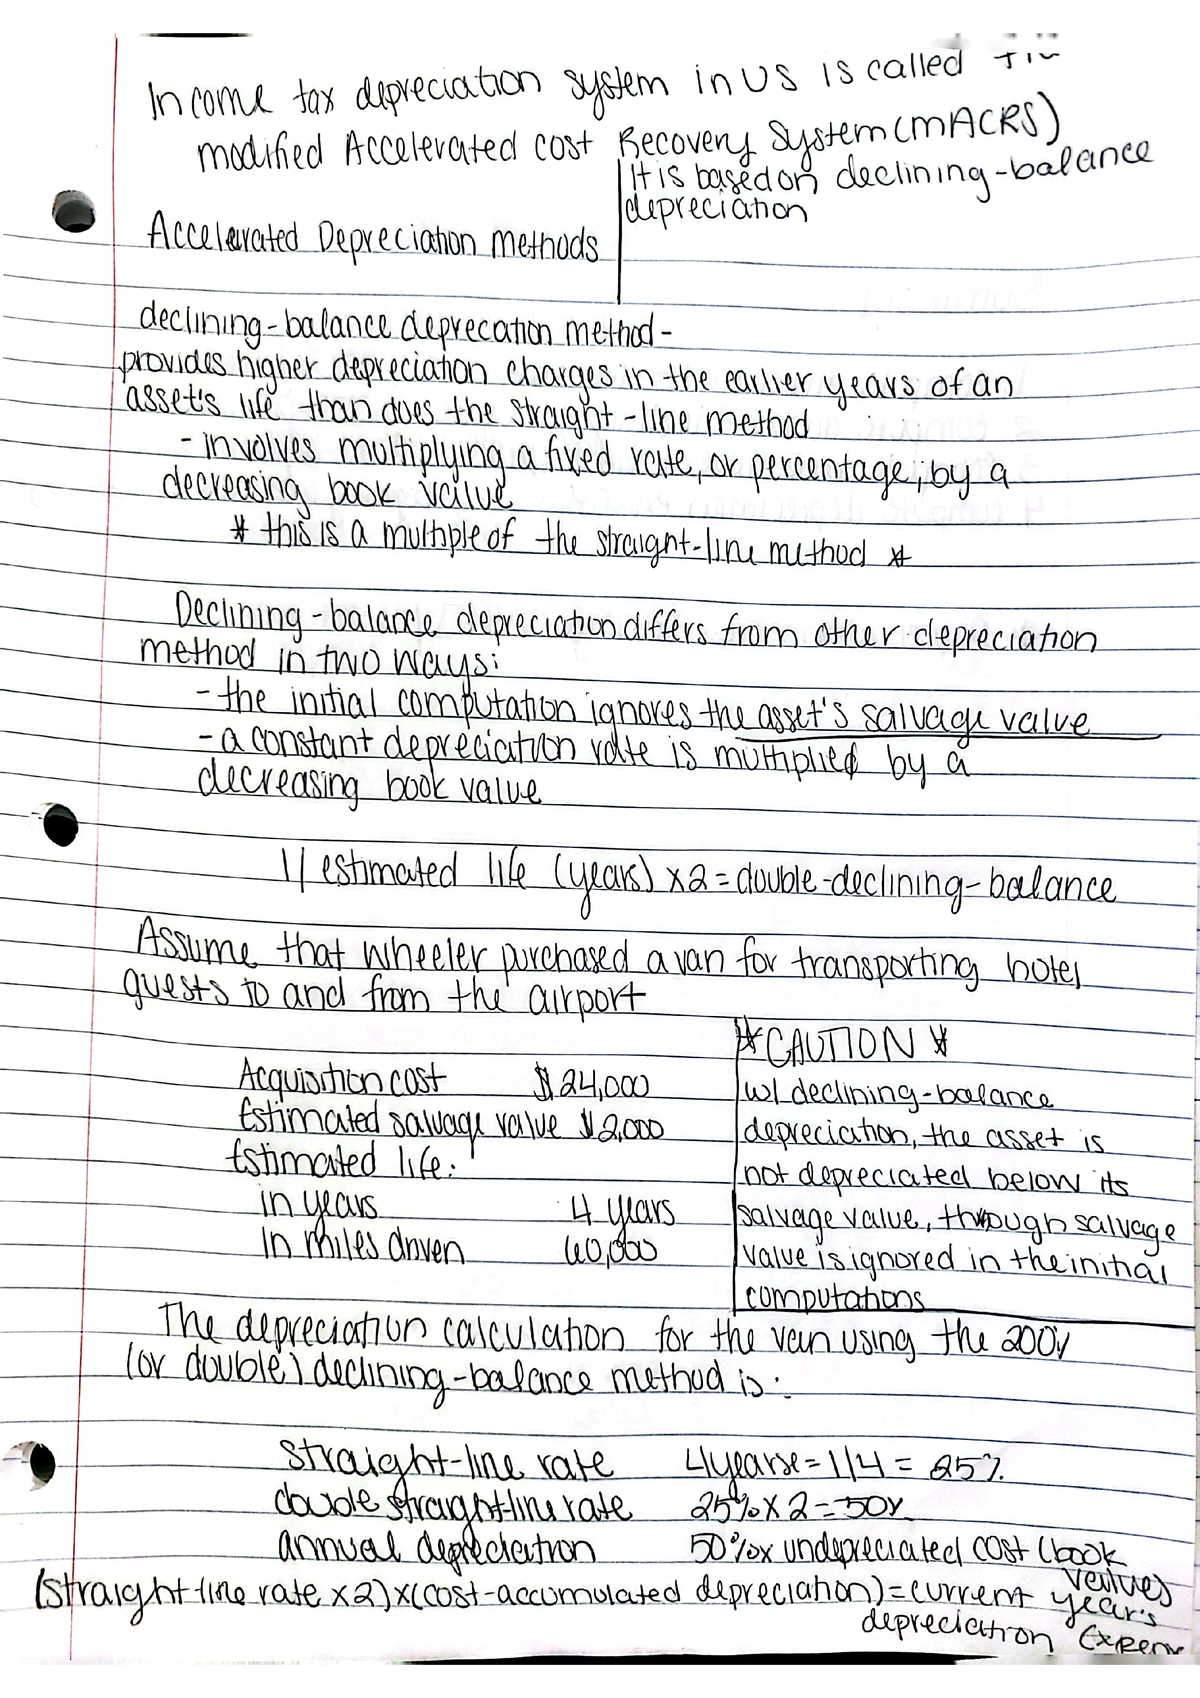 Income tax depreciation system in US is called
modified Accelerated cost Recovery System (MACRS)
It is based on declining-balance
depreciation
Accelerated Depreciation methods
declining-balance deprecation method-
provides higher depreciation charges in the earlier years of an
asset's life than does the straight-line method
- involves multiplying a fixed rate, or percentage, by a
decreasing book value
* this is a multiple of the straight-line method *
Declining-balance depreciation differs from other depreciation
method in two ways:
- the initial computation ignores the asset's salvage value
- a constant depreciation rate is multiplied by a
decreasing book value
1/estimated life (years) x2 = double-declining-balance
Assume that wheeler purchased a van for transporting hotel
guests to and from the airport
*CAUTION*
w/ declining-balance
depreciation, the asset is
not depreciated below its
salvage value, through salvage
value is ignored in the initial
computations
Acquisition cost $24,000
Estimated salvage value $2,000
Estimated life:
in years 4 years
In miles driven 60,000
The depreciation calculation for the van using the 200%
(or double) declining-balance method is:
Straight-line rate 4 yearse = 1/4 = 25%
double straight-line rate 25% x 2 = 50%
annual depreciation 50% x undepreciated cost (book value)
(straight-line rate x2) x (cost-accumulated depreciation) = current year's
depreciation